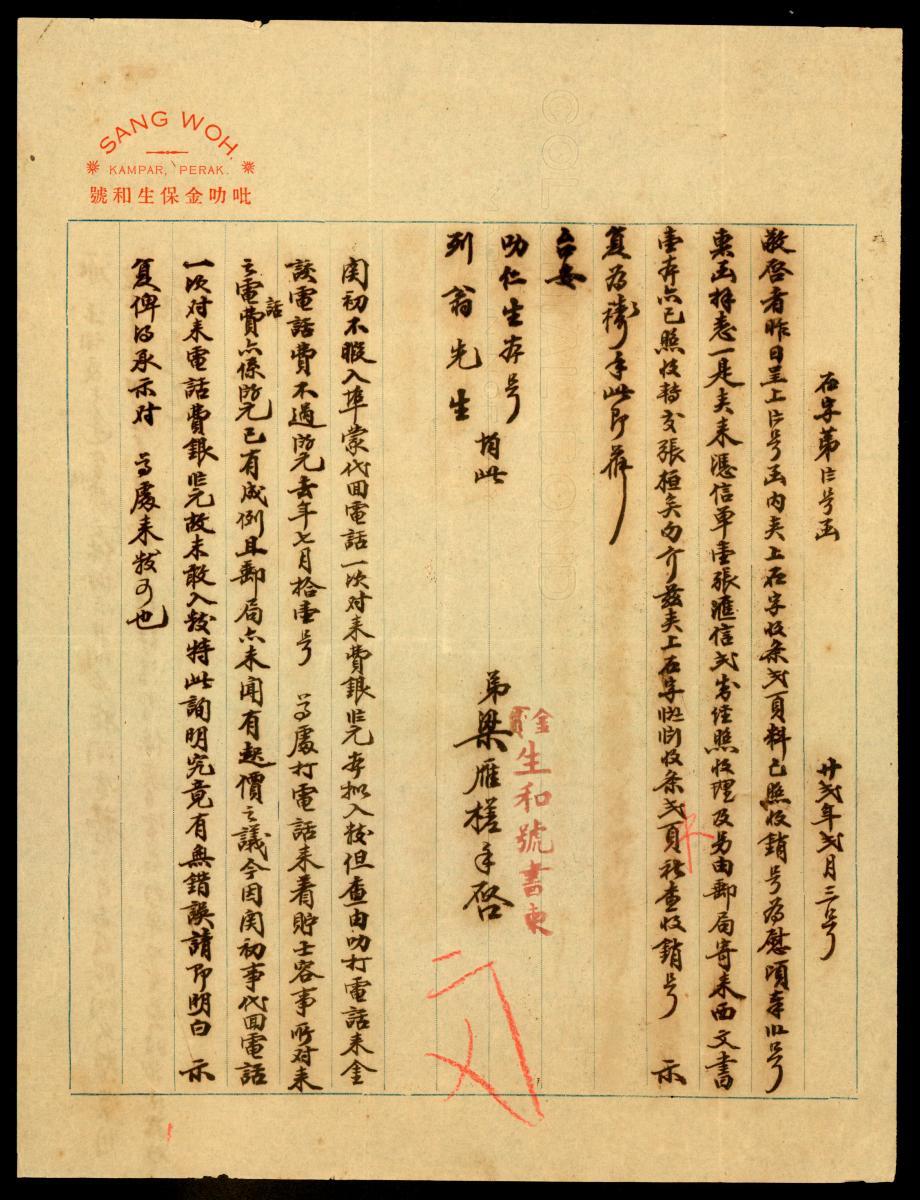 SANG WOH.
KAMPAR, PERAK.
吡叻金保生和號
廿弍年弍月三号
敬啓者昨日呈上号函內夹上石字收条弍頁料已照收銷号為慰頃奉号
東函拜悉一是夹来憑信單壹張滙信弍岁经照收理及另由郵局寄来西文書
壹夲亦已照收轉交張桓矣勿介兹夹上石字收条弍頁祈查收銷号 示
复為禱手此即頌
台安
叻仁生夲号
列翁先生 均此
弟梁雁槎手啓
金寶生和號書柬
関初不暇入埠蒙代回電話一次对来費銀元夲拟入数但查由叻打電話来金
該電話費不過元去年七月拾壹号 尊處打電話来着貯士容事所对来
之電話費亦係元已有成例且郵局亦未聞有起價之議今因関初事代回電話
一次对来電話費銀元故未敢入数特此詢明究竟有無錯誤請即明白 示
复俾得承示对 尊處来数可也